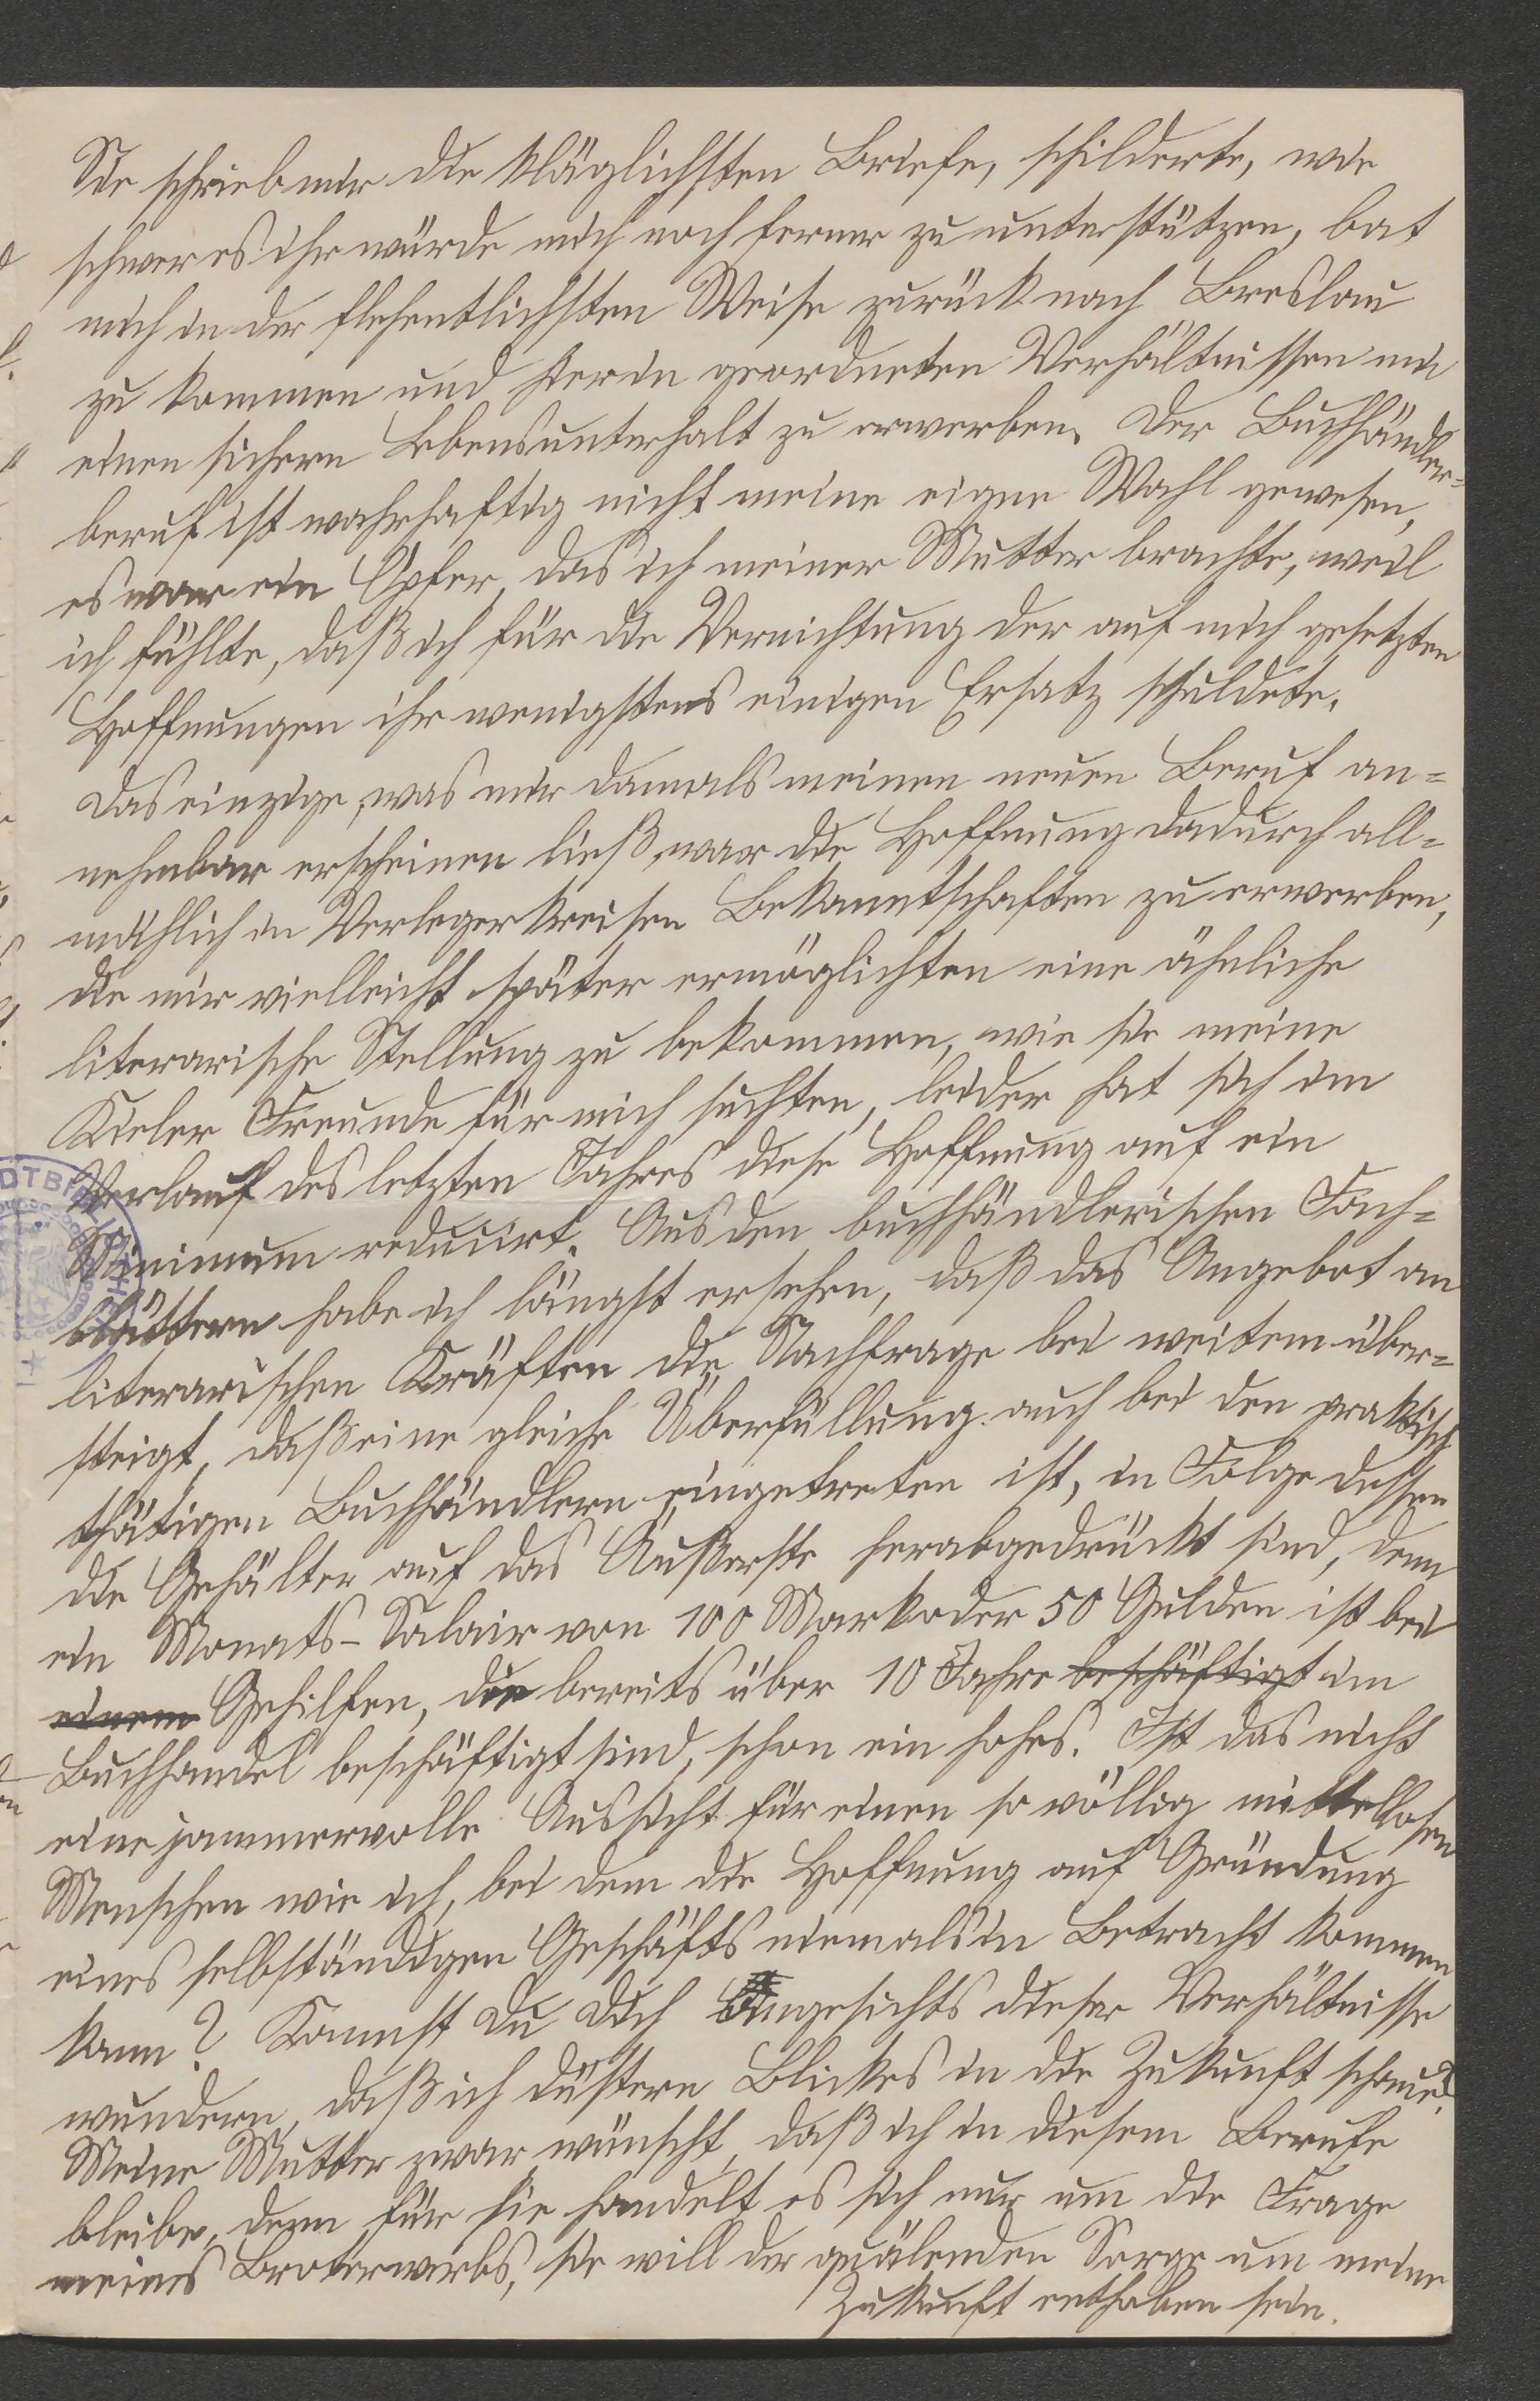 Sie schrieb mir die kläglichsten Briefe, schilderte, wie
schwer es ihr würde mich noch ferner zu unterstützen, bat
mich in der flehentlichsten Weise zurück nach Breslau
zu kommen und hier in geordneten Verhältnissen mir
einen sichern Lebensunterhalt zu erwerben. Der Buchhändler=
beruf ist wahrhaftig nicht meine eigne Wahl gewesen,
es war ein Opfer, das ich meiner Mutter brachte, weil
ich fühlte, daß ich für die Vernichtung der auf mich gesetzten
Hoffnungen ihr wenigstens einigen Ersatz schuldete.
Das einzige, was mir damals meinen neuen Beruf an=
nehmbar erscheinen ließ, war die Hoffnung dadurch all=
mählich in Verlegerkreisen Bekanntschaften zu erwerben,
die mir vielleicht später ermöglichten eine ähnliche
literarische Stellung zu bekommen, wie sie meine
Kieler Freunde für mich suchten, leider hat sich im
Verlauf des letzten Jahres diese Hoffnung auf ein
Minimum reducirt. Aus den buchhändlerischen Fach=
blättern habe ich längst ersehen, daß das Angebot an
literarischen Kräften die Nachfrage bei weitem über=
steigt, daß eine gleiche Überfüllung auch bei den praktisch
thätigen Buchhändlern eingetreten ist, in Folge dessen
die Gehälter auf das Äußerste herabgedrückt sind, denn
ein Monats-Salair von 100 Mark oder 50 Gulden ist bei
einem Gehilfen, die bereits über 10 Jahre beschäftigt im
Buchhandel beschäftigt sind, schon ein hohes. Ist das nicht
eine jammervolle Aussicht für einen so völlig mittellosen
Menschen wie ich, bei dem die Hoffnung auf Gründung
eines selbständigen Geschäfts niemals in Betracht kommen
kann? Kannst Du Dich Angesichts dieser Verhältnisse
wundern, daß ich düstern Blickes in die Zukunft schaue?
Meine Mutter zwar wünscht, daß ich in diesem Berufe
bleibe, denn für sie handelt es sich nur um die Frage
meines Broterwerbs, sie will der quälenden Sorge um meine
Zukunft enthoben sein.